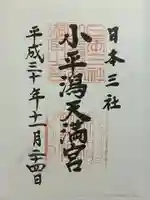 日本三社
小平潟天満宮
平成三十年十一月二十四日